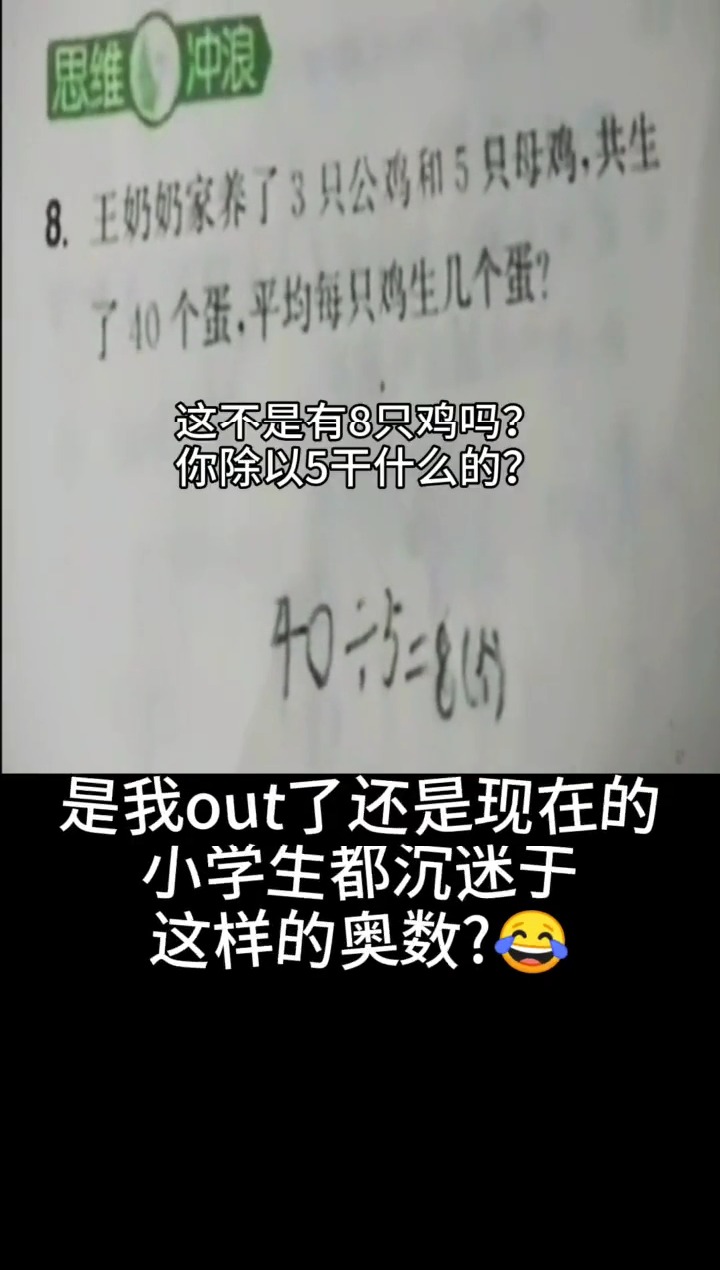 思维冲浪
8. 王奶奶家养了3只公鸡和5只母鸡,共生
了40个蛋,平均每只鸡生几个蛋?
这不是有8只鸡吗?
你除以5干什么的?
40÷5=8(个)
是我out了还是现在的
小学生都沉迷于
这样的奥数?😂